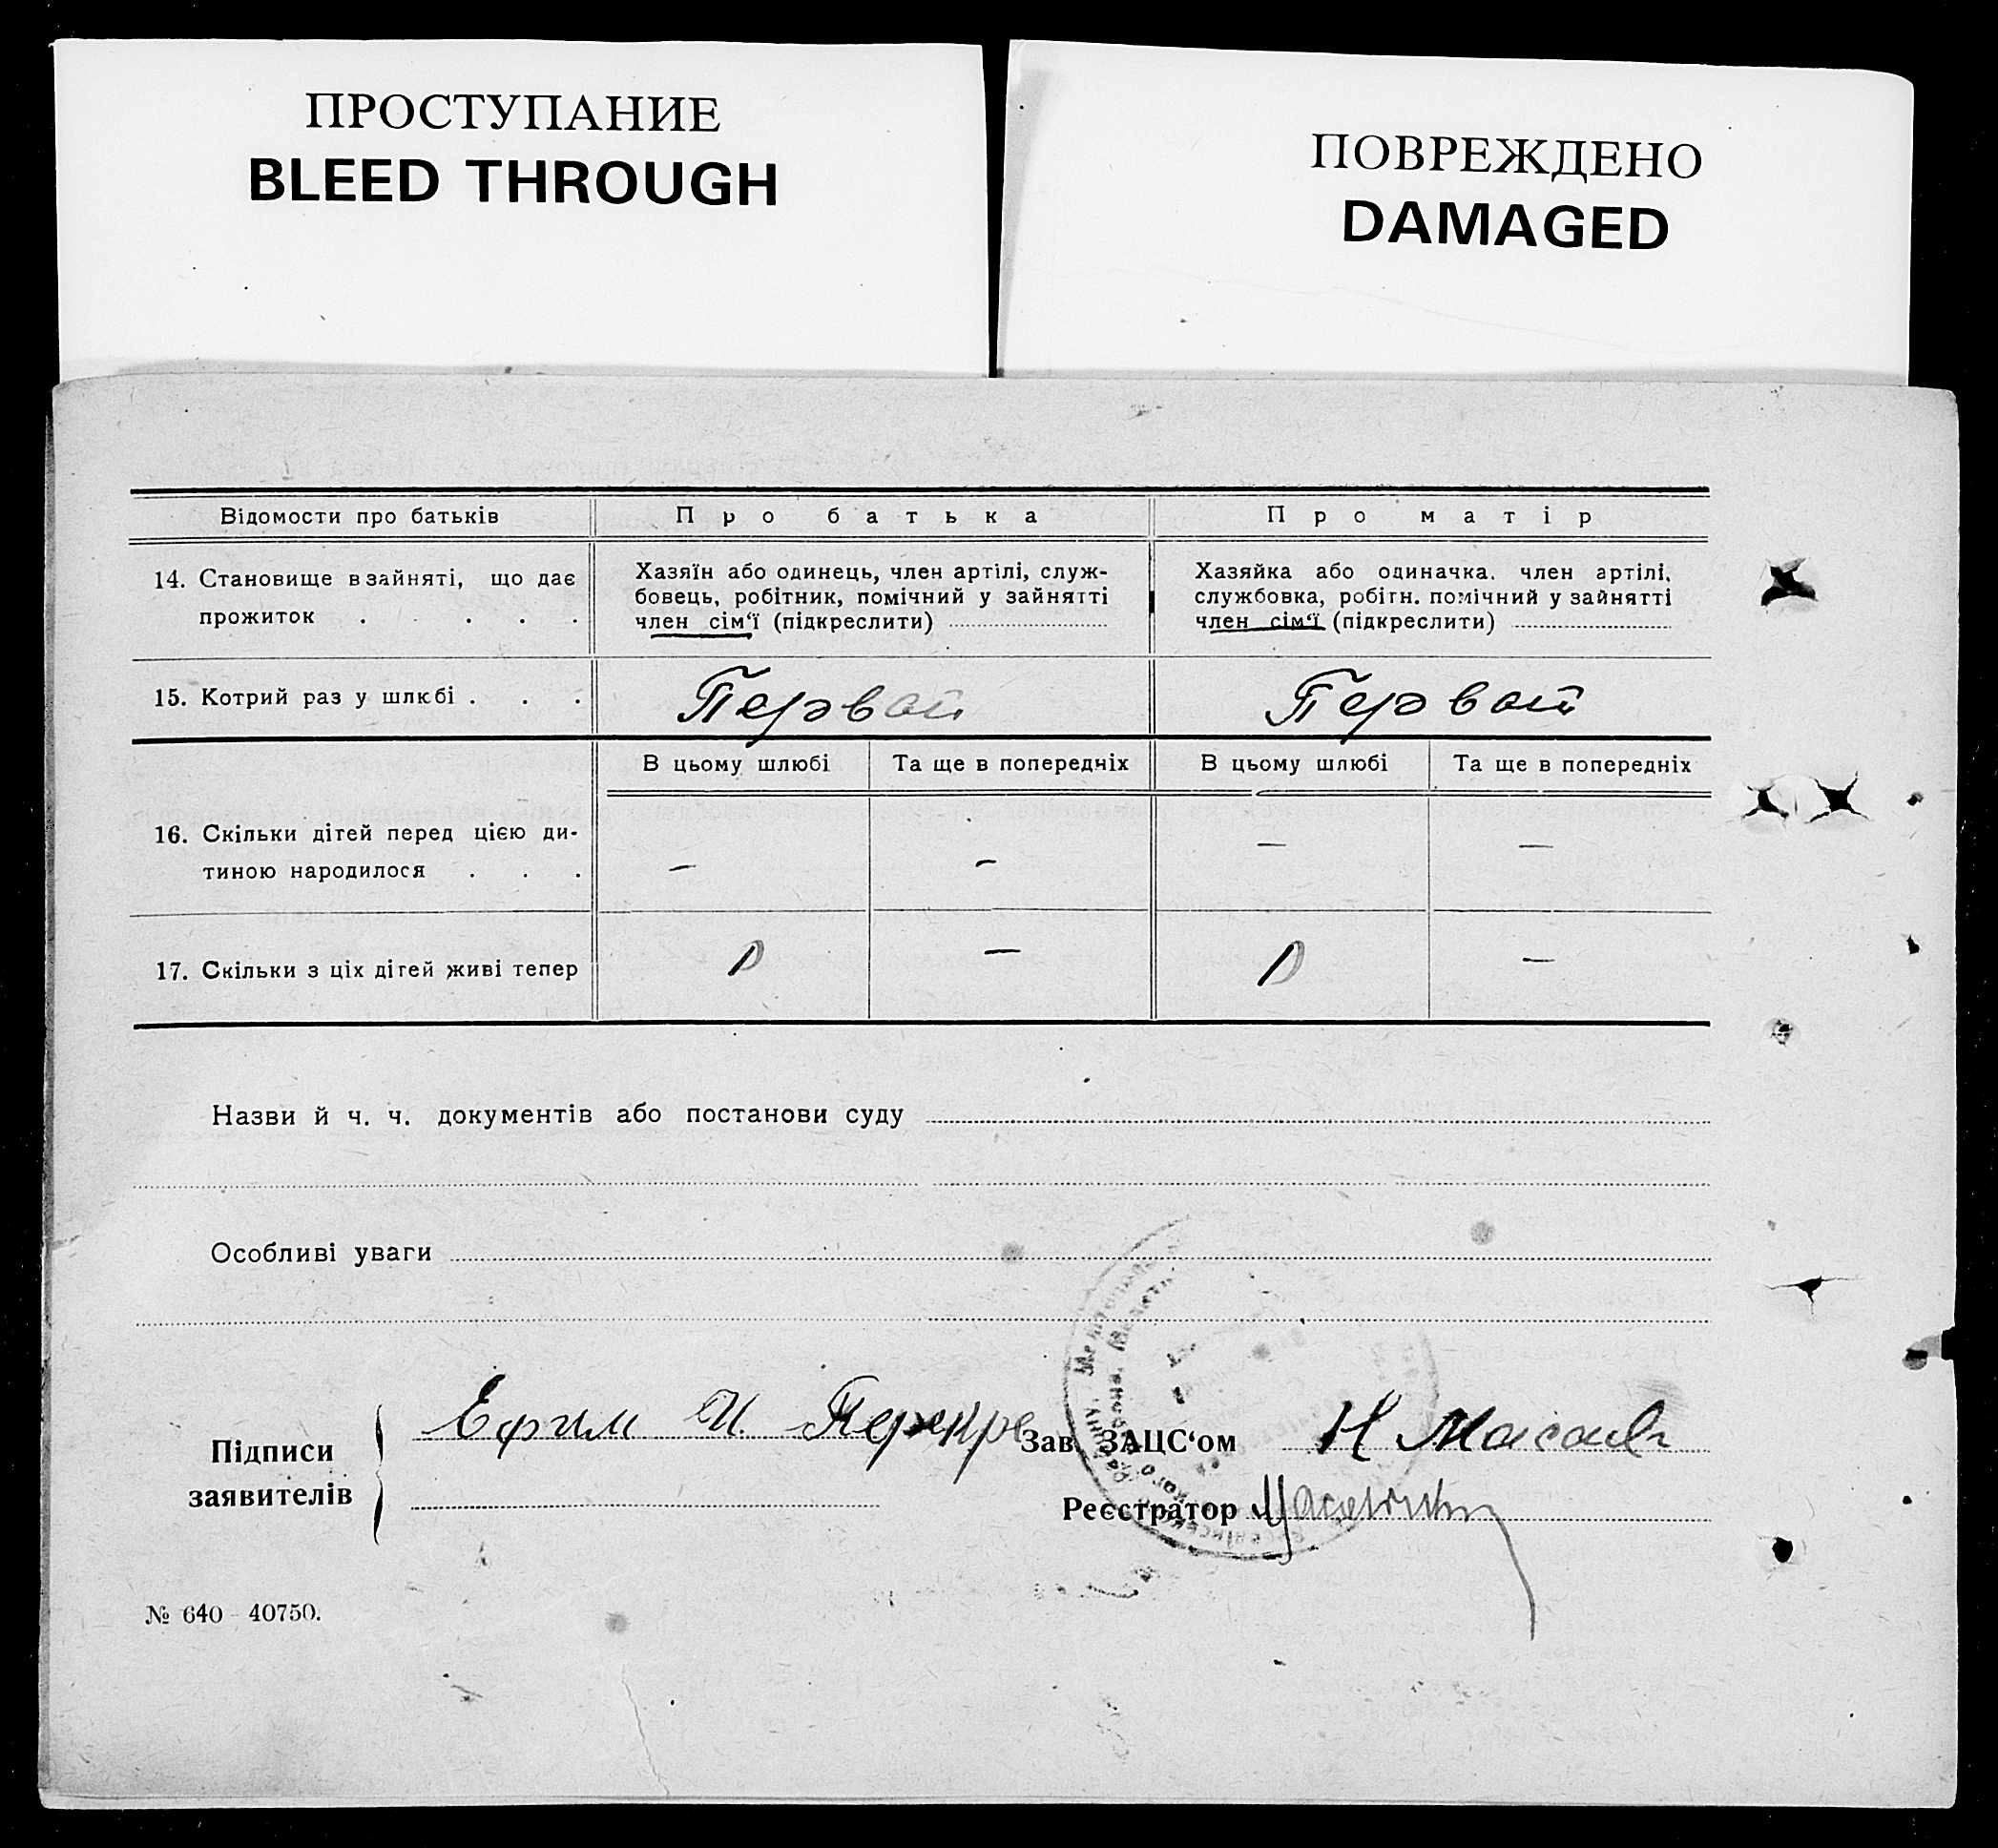 ПРОСТУПАНИЕ
BLEED THROUGH
ПОВРЕЖДЕНО
DAMAGED
Відомости про батьків
Про батька
Про матір
14. Становище в зайняті, що дає
прожиток . . . .
Хазяїн або одинець, член артілі, служ-
бовець, робітник, помічний у зайнятті
член сім‘ї (підкреслити)
Хазяйка або одиначка. член артілі,
службовка, робітн. помічний у зайнятті
член сім‘ї (підкреслити)
15. Котрий раз у шлюбі . . .
Первой
Первой
В цьому шлюбі
Та ще в попередніх
В цьому шлюбі
Та ще в попередніх
16. Скільки дітей перед цією ди-
тиною народилося . . .
– – – –
17. Скільки з ціх дітей живі тепер
– –
Назви й ч. ч. документів або постанови суду
Особливі уваги
Підписи
заявителів
Ефим И.
Зав. ЗАЦС‘ом
Н
Реєстратор
№ 640 – 40750.